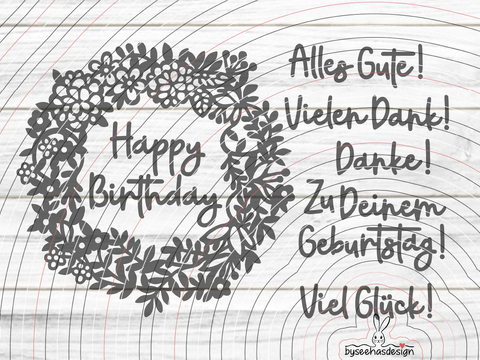 Happy
Birthday
Alles Gute!
Vielen Dank!
Danke!
Zu Deinem
Geburtstag!
Viel Glück!
byseehasdesign